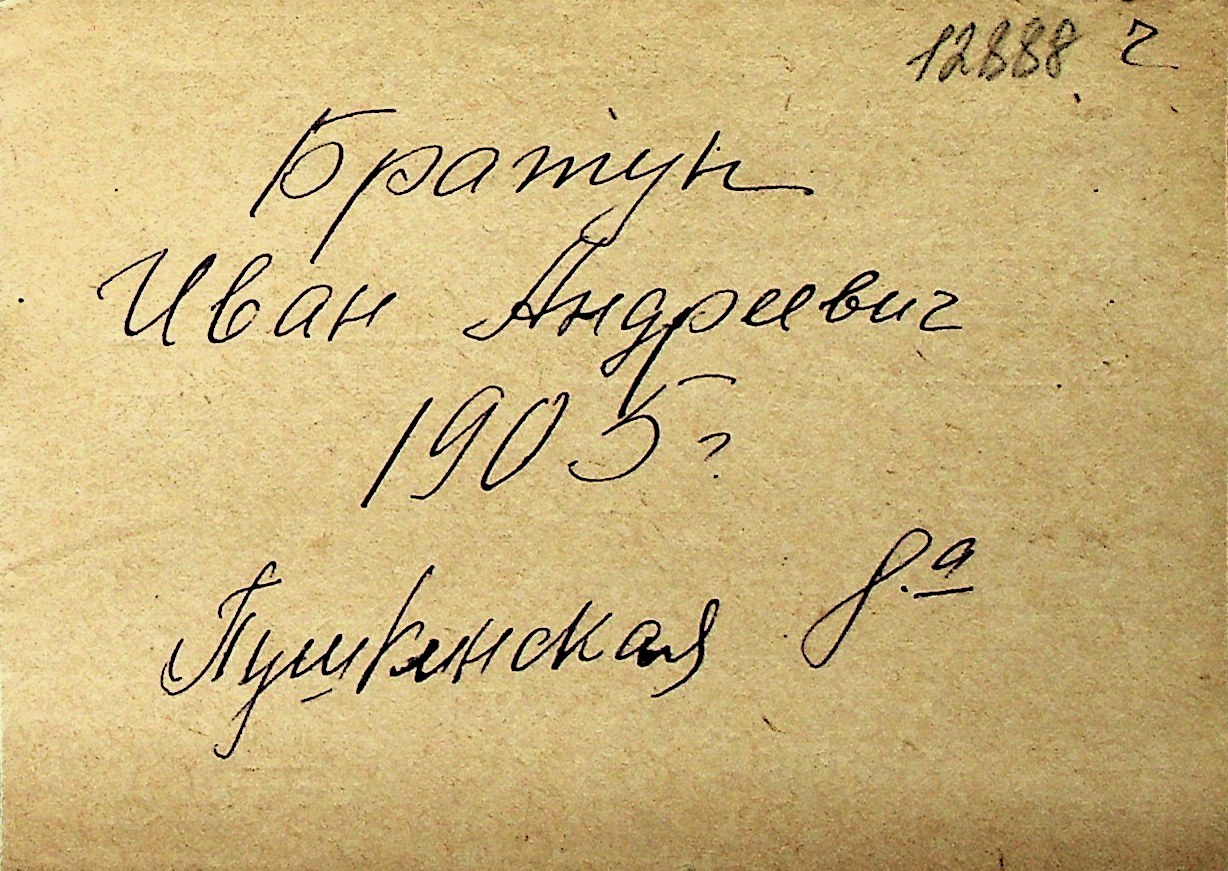 12888 г
Братун
Иван Андреевич
1905 г
Пушкинская 8.а